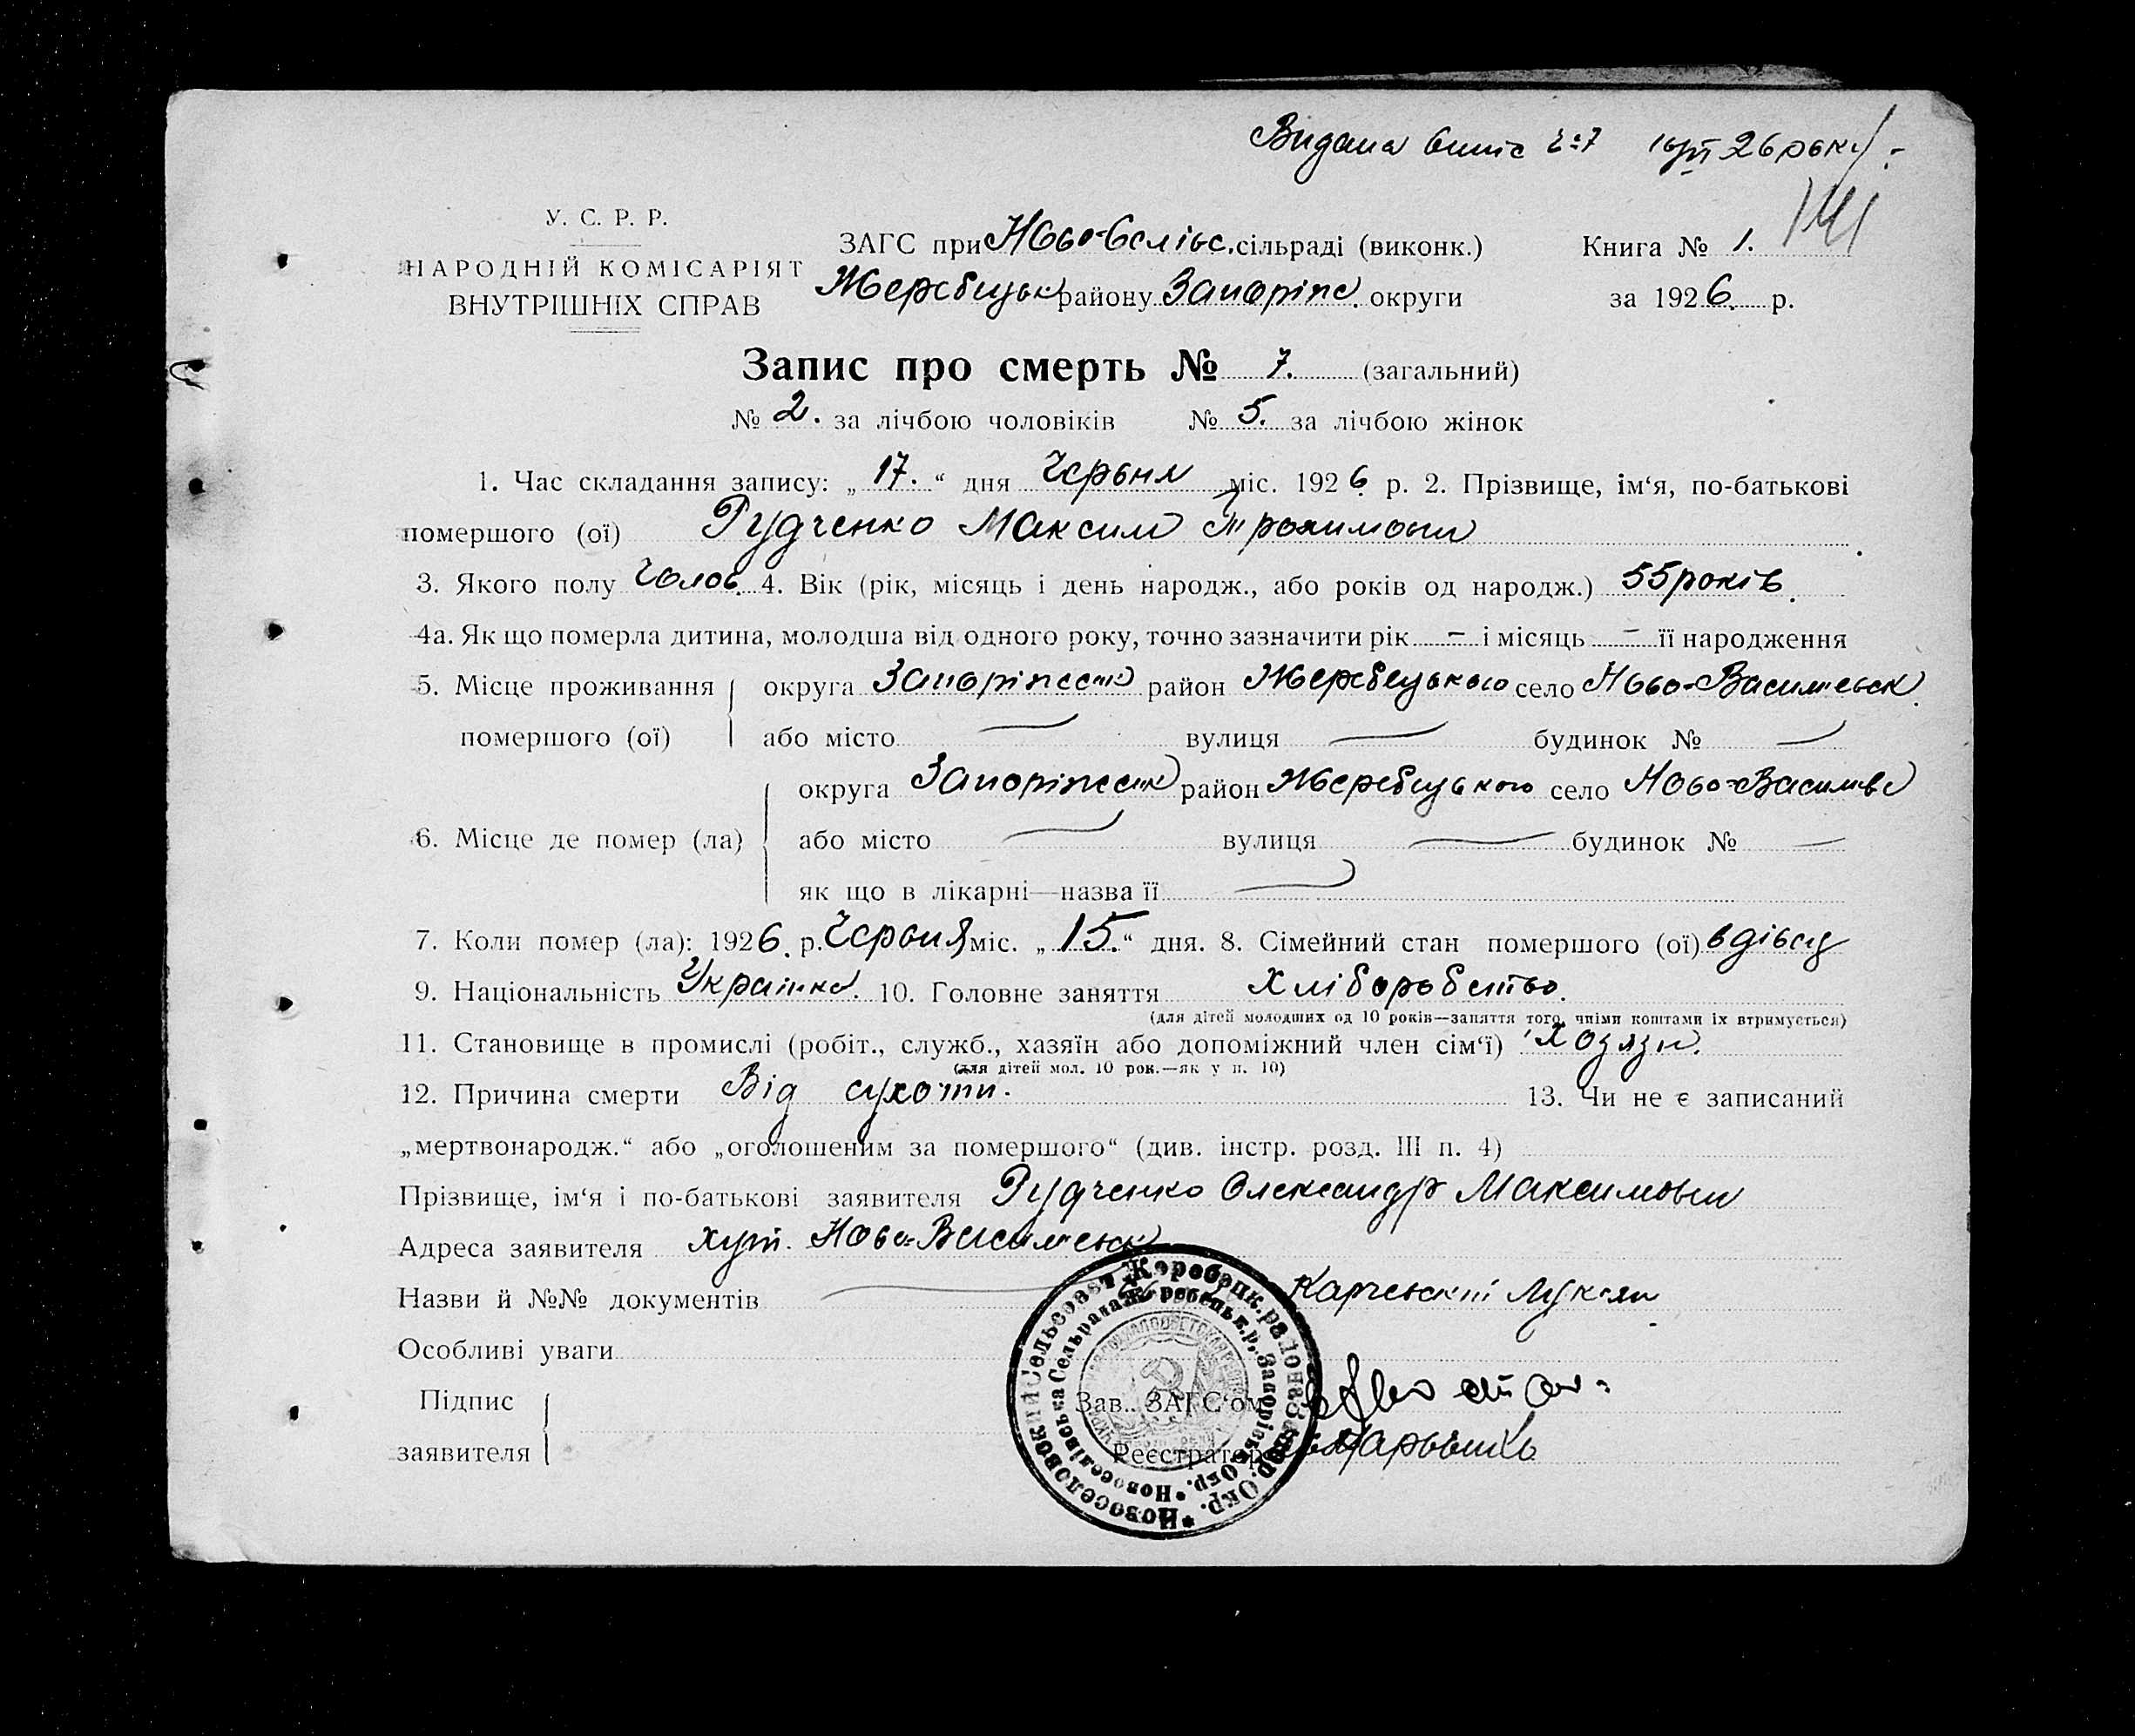 Видана випис ч:7 26 року
141
У. С. Р. Р.
НАРОДНІЙ КОМІСАРІЯТ
ВНУТРІШНІХ СПРАВ
ЗАГС при Ново-Селівс. сільраді (виконк.)
Жеребецьк району Запоріж. округи
Книга № 1.
за 1926. р.
Запис про смерть № 7. (загальний)
№ 2. за лічбою чоловіків № 5. за лічбою жінок
1. Час складання запису: „17.“ дня Червня міс. 1926. р. 2. Прізвище, ім‘я, по-батькові
помершого (ої) Рудченко Максим Трохимович
3. Якого полу Чолов. 4. Вік (рік, місяць і день народж., або років од народж.) 55 років.
4а. Як що померла дитина, молодша від одного року, точно зазначити рік – і місяць – її народження
5. Місце проживання помершого (ої)
округа Запоріжськ район Жеребецького село Ново-Васильевськ
або місто — вулиця — будинок № —
6. Місце де помер (ла)
округа Запоріжськ район Жеребецького село Ново-Васильвс
або місто — вулиця — будинок № —
як що в лікарні—назва її —
7. Коли помер (ла): 1926. р. Червня міс. „15.“ дня. 8. Сімейний стан помершого (ої) вдівец
9. Національність Українец. 10. Головне заняття Хліборобство.
(для дітей молодших од 10 років—заняття того, чиїми коштами їх втримується)
11. Становище в промислі (робіт., служб., хазяїн або допоміжний член сім‘ї) Хозяїн.
(для дітей мол. 10 рок.—як у п. 10)
12. Причина смерти Від сухоти. 13. Чи не є записаний
„мертвонародж.“ або „оголошеним за помершого“ (див. інстр. розд. III п. 4)
Прізвище, ім‘я і по-батькові заявителя Рудченко Олександр Максимович
Адреса заявителя хут. Ново-Васильевськ
Назви й №№ документів —
Особливі уваги
Підпис заявителя
Зав. ЗАГС‘ом
Реєстратор
Новоселовский Сельсовет Жеребецк. района Запор. Окр.
Новоселівська Сельрада Жеребецьк. р. Запорізьк. Окр.